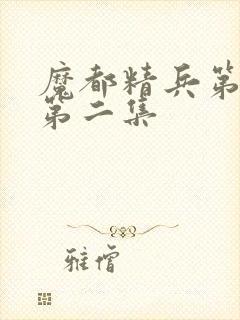 魔都精兵第
第二集
雅僧